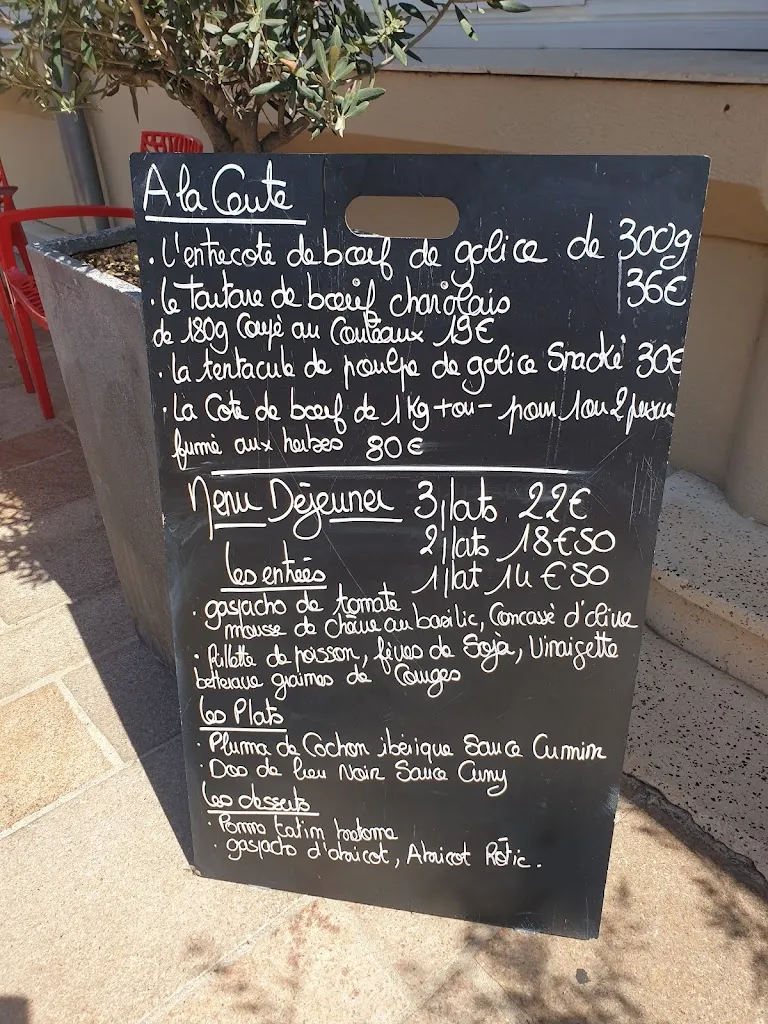 A la Carte
. L'entrecote de bœuf de galice de 300g
36€
. Le Tartare de bœuif charolais
de 180g Coupé au Couteaux 19€
. la tentacule de poulpe de galice Snacké 30€
. La Cote de bœuf de 1kg + ou - pour 1 ou 2 perso
fumé aux herbes 80€
Menu Déjeuner 3 plats 22€
2 plats 18€50
1 plat 14€50
les entrées
. gaspacho de tomate
mousse de chèvre au basilic, Concassé d'olive
. Rillette de poisson, fèves de Soja, Vinaigette
betterave graines de Courges
les Plats
. Pluma de Cochon ibérique Sauce Cumin
. Dos de lieu Noir Sauce Curry
les desserts
. Pomme tatin bretonne
. gaspacho d'abricot, Abricot Rôtie.